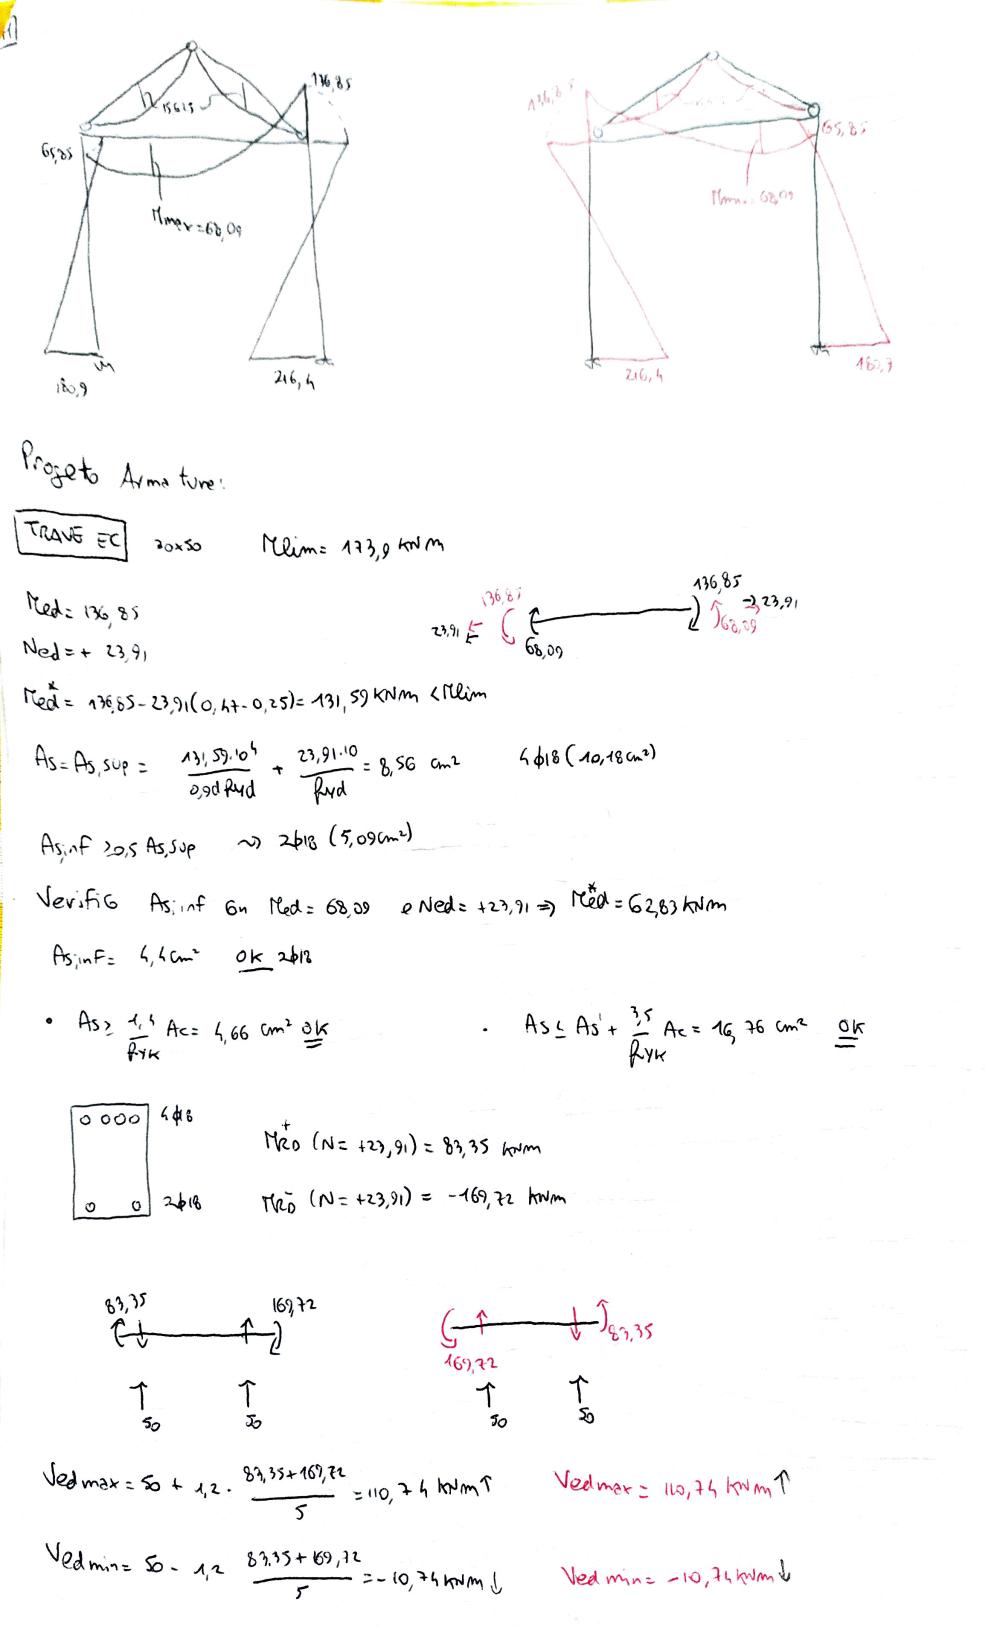 136,85
65,85
Mmax=68,09
180,9
216,4
65,85
216,4
Progeto Armature:
TRAVE EC 30x50 Mlim= 173,9 KNm
Med= 136,85
Ned=+ 23,91
136,85
23,91
68,09
136,85
→ 23,91
68,09
Med*= 136,85-23,91(0,47-0,25)= 131,59 KNm <Mlim
As=As,sup = 131,59·10⁴/0,9d fyd + 23,91·10/fyd = 8,56 cm² 4ϕ18 (10,18cm²)
As,inf ≥0,5 As,sup ⇝ 2ϕ18 (5,09cm²)
Verifico As,inf con Med= 68,09 e Ned= +23,91 ⇒ Med*= 62,83 KNm
As,inf= 4,4cm² OK 2ϕ18
• As ≥ 1,4/fyk Ac= 4,66 cm² OK • As ≤ As' + 3,5/fyk Ac = 16,76 cm² OK
4ϕ18
2ϕ18
MRD⁺ (N= +23,91) = 83,35 KNm
MRD⁻ (N= +23,91) = -169,72 KNm
83,35 169,72
50 50
169,72 83,35
50 50
Vedmax = 50 + 1,2 · 83,35+169,72/5 = 110,74 KNm↑ Vedmax = 110,74 KNm↑
Vedmin= 50 - 1,2 83,35+169,72/5 = -10,74 KNm↓ Vedmin= -10,74 KNm↓